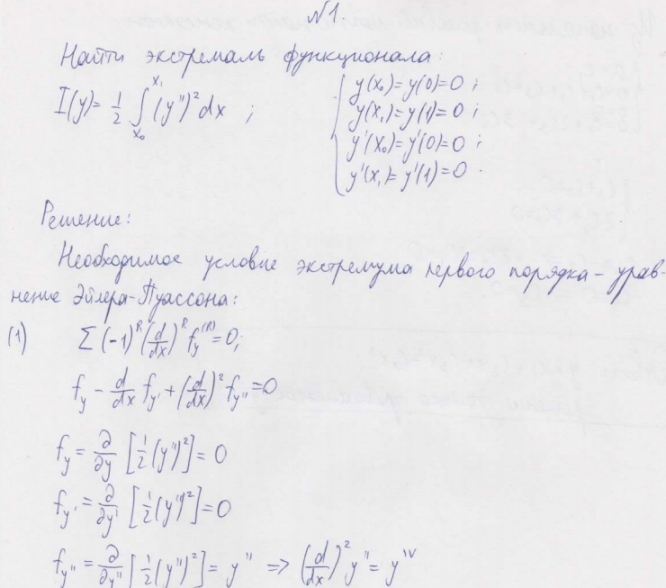 №1
Найти экстремаль функционала:
I(y) = 1/2 ∫_{x₀}^{x₁} (y'')² dx ;
y(x₀) = y(0) = 0 ;
y(x₁) = y(1) = 0 ;
y'(x₀) = y'(0) = 0 ;
y'(x₁) = y'(1) = 0 .
Решение:
Необходимое условие экстремума первого порядка – урав-
нение Эйлера-Пуассона:
(1) Σ (-1)^k (d/dx)^k f_{y^{(k)}} = 0;
f_y - d/dx f_{y'} + (d/dx)² f_{y''} = 0
f_y = ∂/∂y [1/2 (y'')²] = 0
f_{y'} = ∂/∂y' [1/2 (y'')²] = 0
f_{y''} = ∂/∂y'' [1/2 (y'')²] = y'' => (d/dx)² y'' = y^{IV}